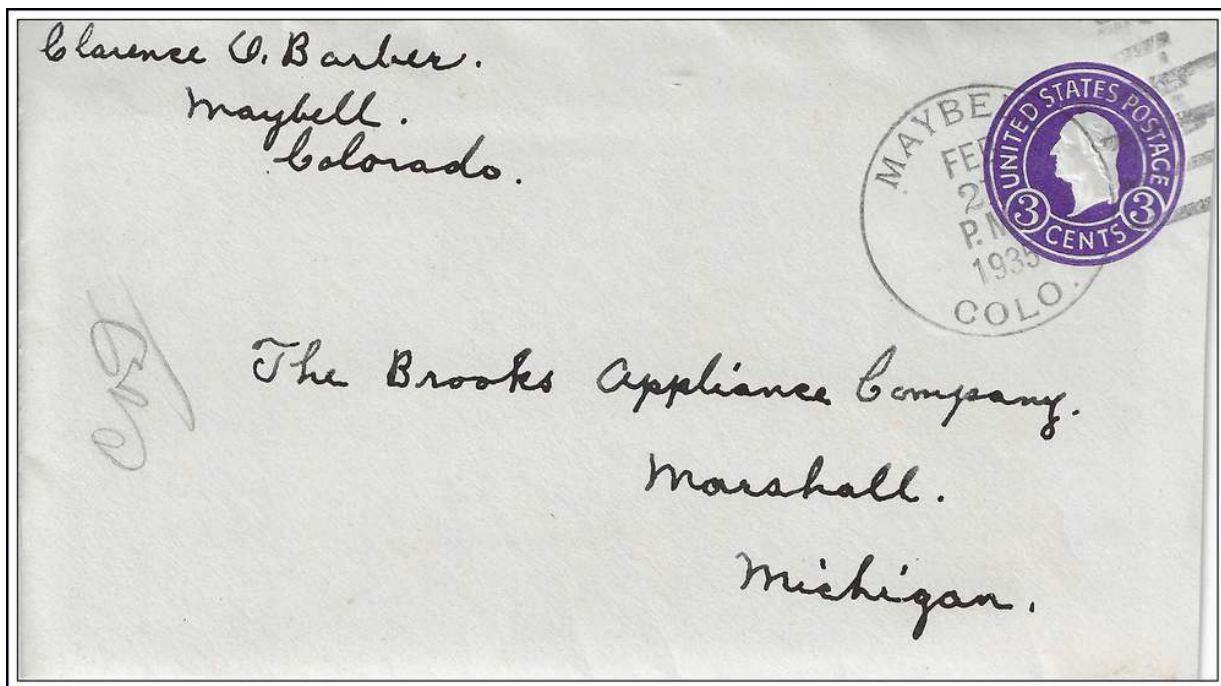 Clarence O. Barber.
Maybell.
Colorado.
MAYBE
FEB
P.M
1935
COLO.
UNITED STATES POSTAGE
3 CENTS 3
The Brooks Appliance Company.
Marshall.
Michigan.